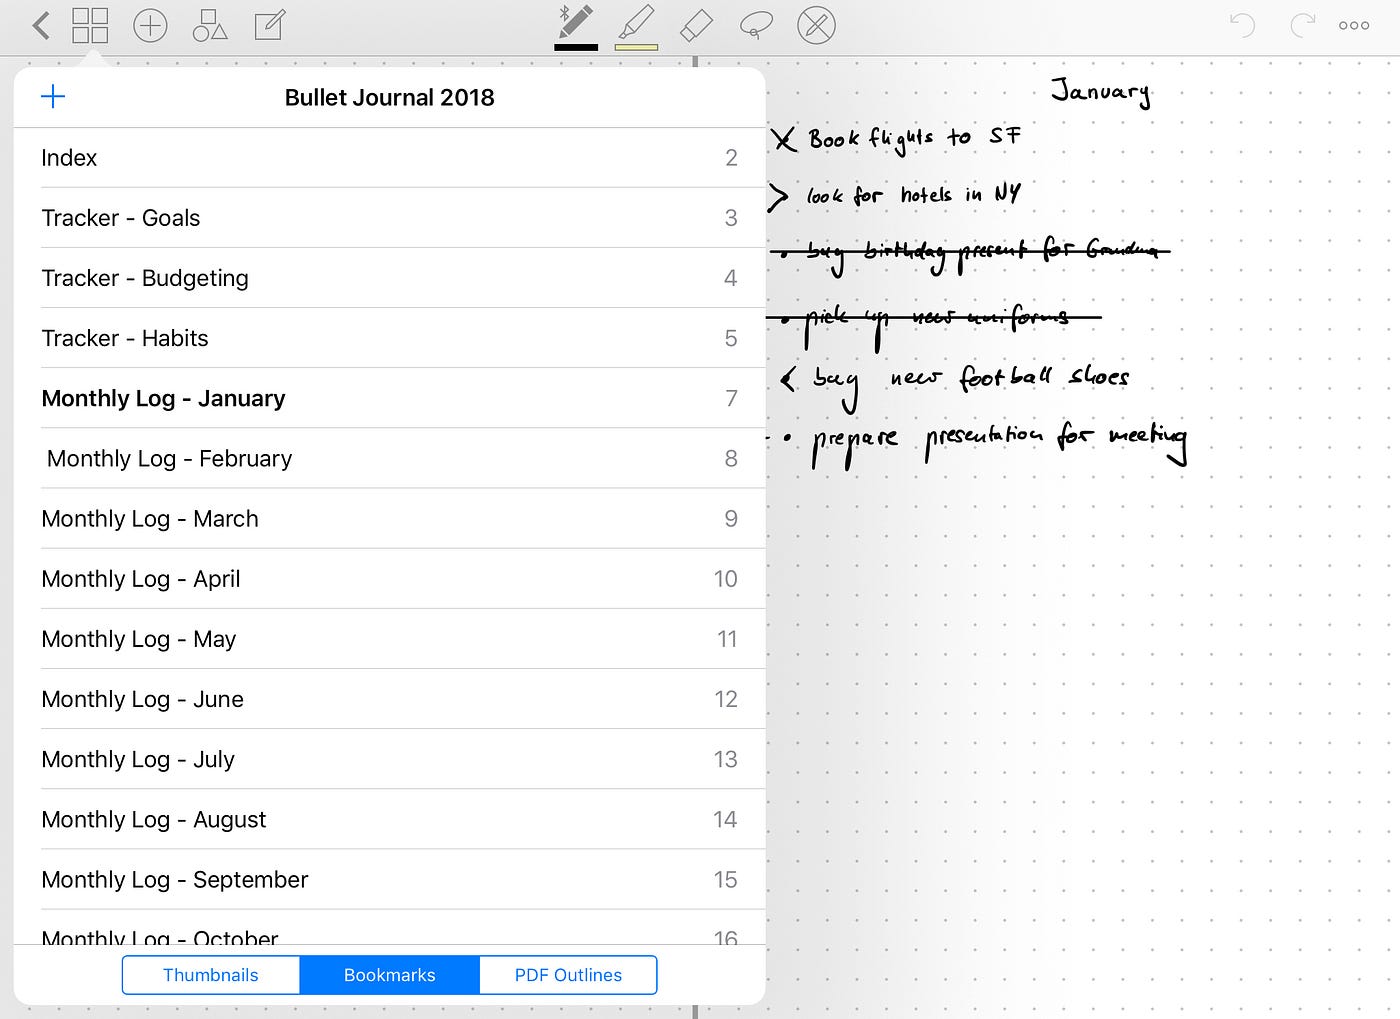 Bullet Journal 2018
Index 2
Tracker - Goals 3
Tracker - Budgeting 4
Tracker - Habits 5
Monthly Log - January 7
Monthly Log - February 8
Monthly Log - March 9
Monthly Log - April 10
Monthly Log - May 11
Monthly Log - June 12
Monthly Log - July 13
Monthly Log - August 14
Monthly Log - September 15
Monthly Log - October 16
Thumbnails Bookmarks PDF Outlines
January
X Book flights to SF
> look for hotels in NY
• buy birthday present for Grandma
• pick up new uniforms
< buy new football shoes
• prepare presentation for meeting